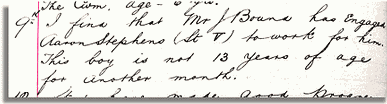 The Com, age - 6 yrs.
9th I find that Mr J Bound has Engaged
Aaron Stephens (St V) to work for him.
This boy is not 13 years of age
for another month.
made good